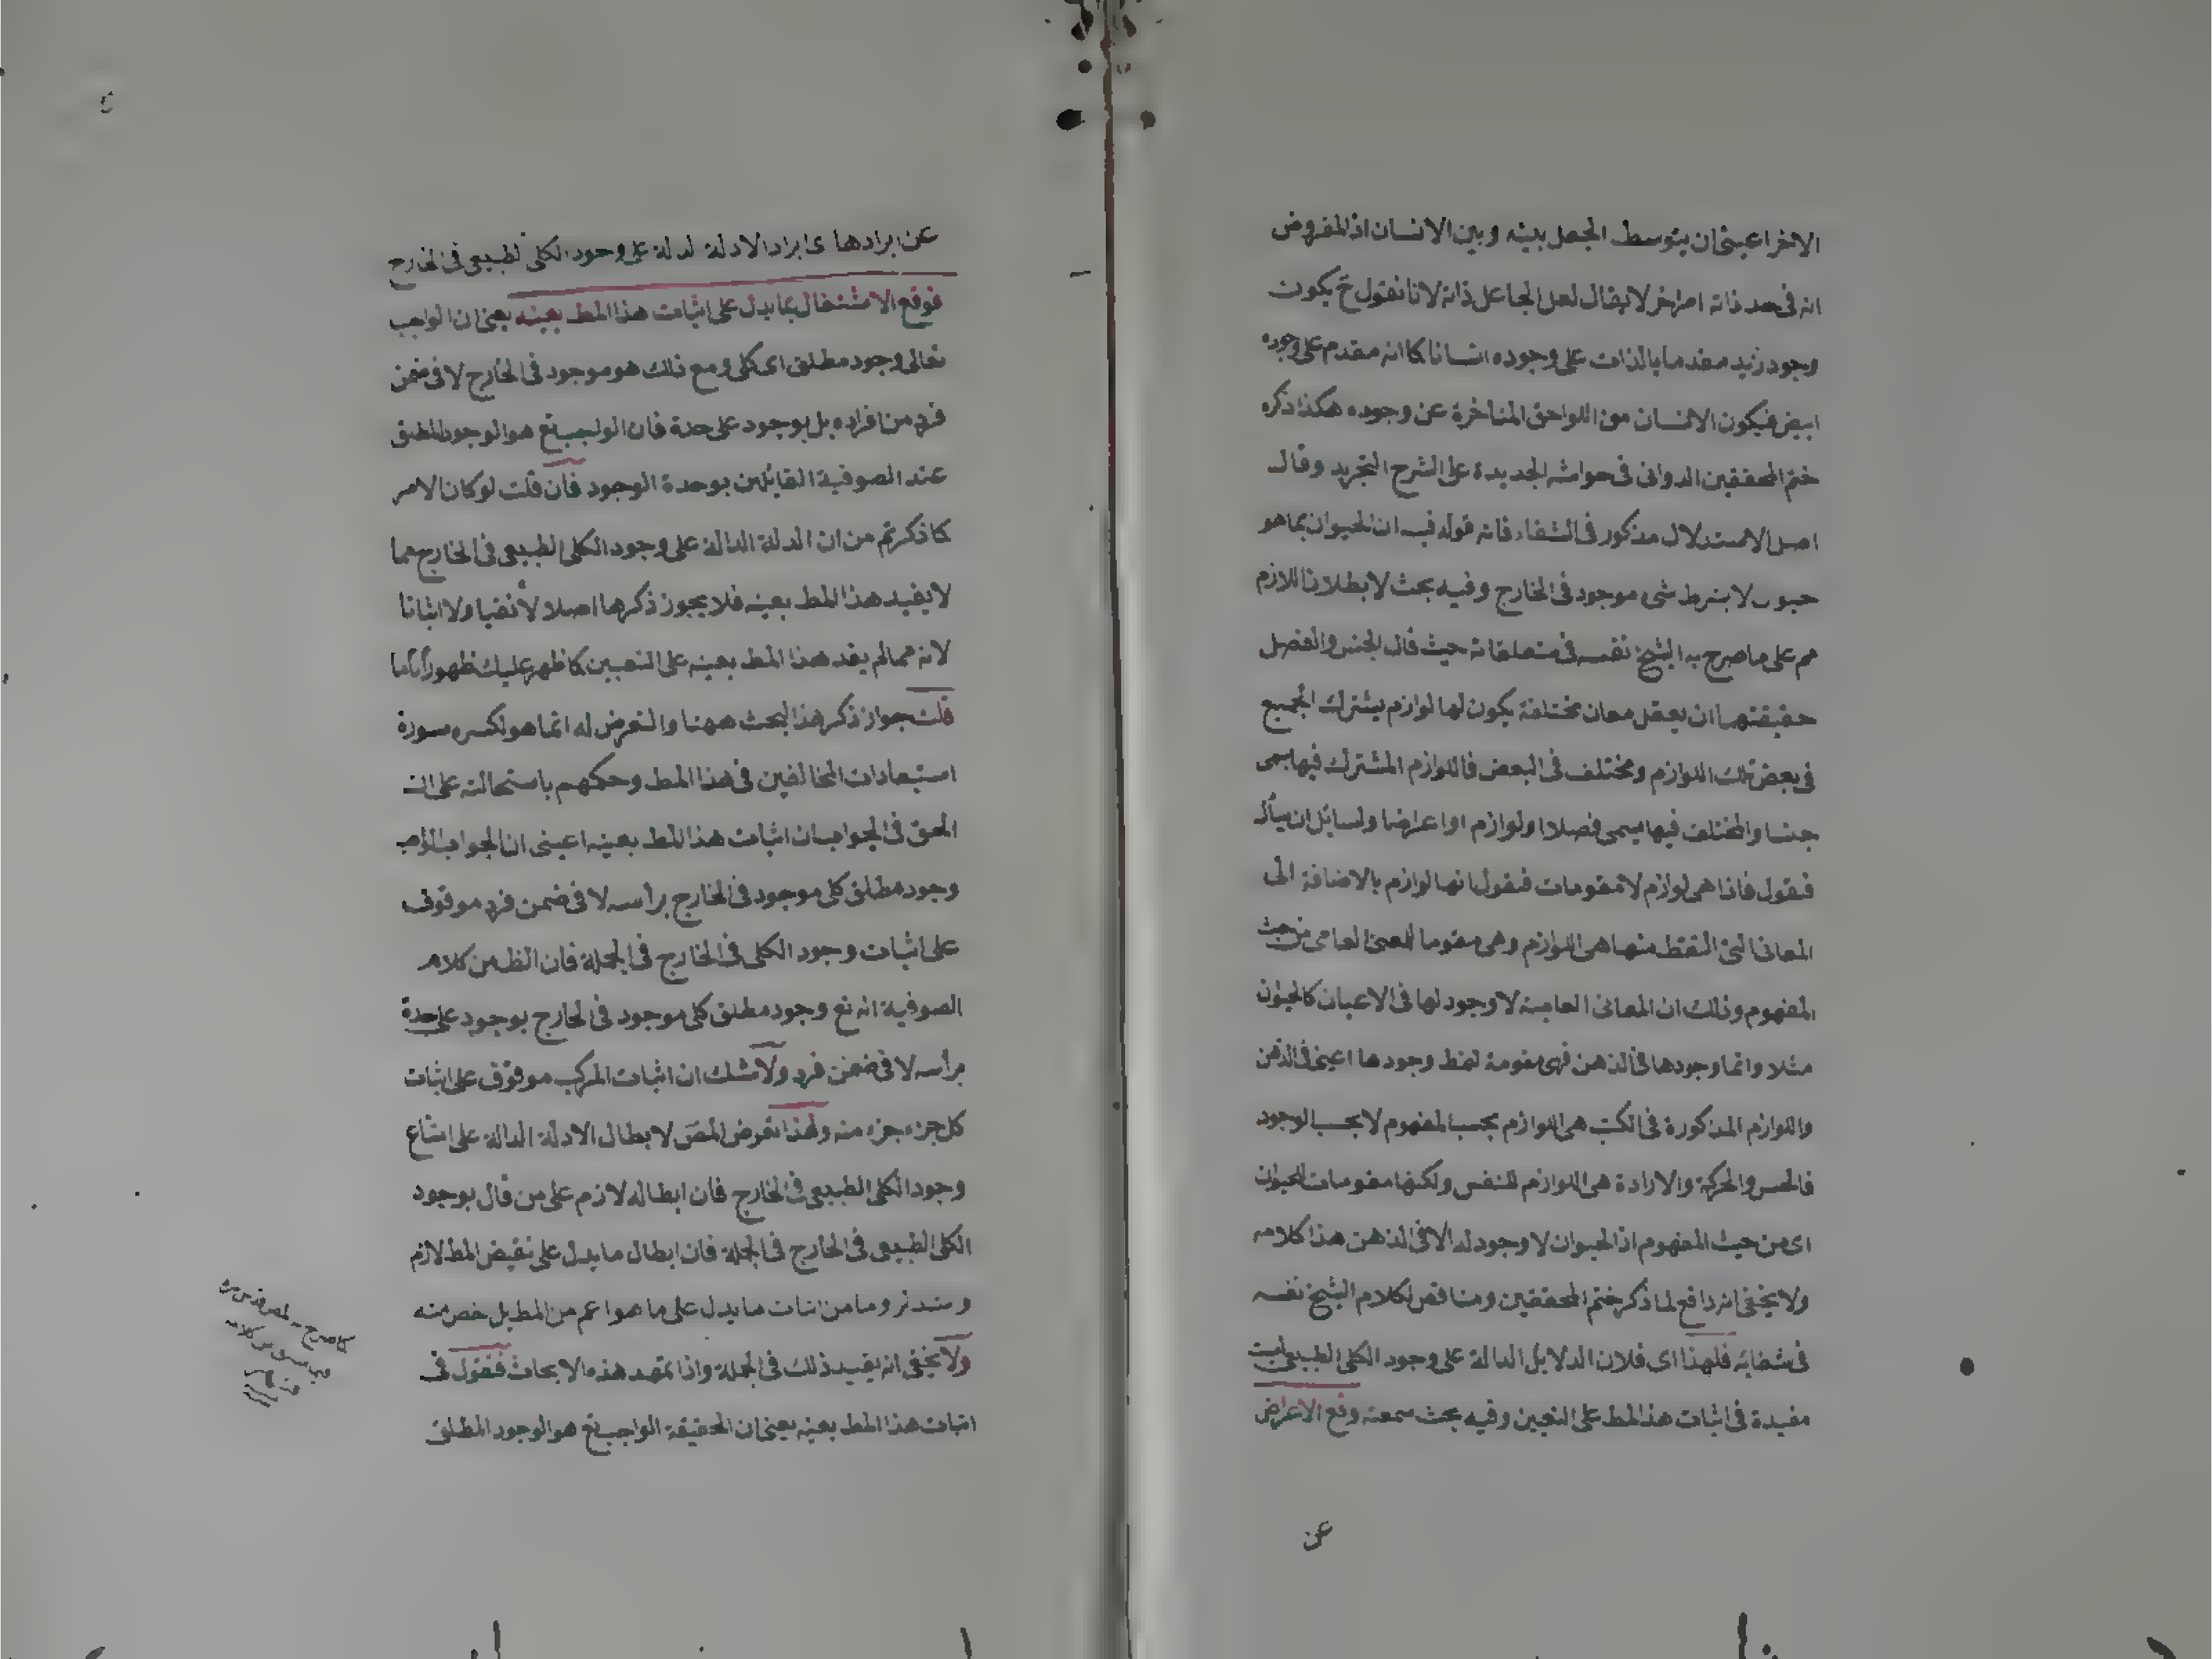 الاخر اعنى ان يتوسط الجعل بينه وبين الانسان اذ المفروض
انه فى حد ذاته امر اخر لا يقال لعل الجاعل ذاته لانا نقول ح يكون
وجود زيد مقدما بالذات على وجوده انسانا كما انه مقدم على وجوده
ابيض فيكون الانسان من اللواحق المتاخرة عن وجوده هكذا ذكره
ختم المحققين الدوانى فى حواشيه الجديدة على الشرح التجريد وقال
اصل الاستدلال مذكور فى الشفاء فانه قوله فيه ان الحيوان بما هو
حيوان لا بشرط شى موجود فى الخارج وفيه بحث لا بطلان اللازم
مم على ما صرح به الشيخ نفسه فى متعلقاته حيث قال الجنس والفصل
حقيقتهما ان يعقل معان مختلفة يكون لها لوازم يشترك الجميع
فى بعض تلك اللوازم ومختلف فى البعض فاللوازم المشترك فيها يسمى
جنسا والمختلف فيها يسمى فصلا او لوازم او اعراضا ولسائل ان يسأل
فيقول فاذا هى لوازم لا مقومات فيقول انها لوازم بالاضافة الى
المعانى التى التقط منها هى اللوازم وهى مقوما للمعنى العامى من حيث
المفهوم وذلك ان المعانى العامية لا وجود لها فى الاعيان كالحيوان
مثلا وانما وجودها فى الذهن فهى مقومة لنمط وجودها اعنى فى الذهن
واللوازم المذكورة فى الكتب هى اللوازم بحسب المفهوم لا بحسب الوجود
فالحس والحركة والارادة هى اللوازم للنفس ولكنها مقومات للحيوان
اى من حيث المفهوم اذ الحيوان لا وجود له الا فى الذهن هذا كلامه
ولا يخفى انه دافع لما ذكر ختم المحققين ومناقض لكلام الشيخ نفسه
فى شفائه فلهذا اى فلان الدلايل الدالة على وجود الكلى الطبيعى ليست
مفيدة فى اثبات هذا المط على التعيين وفيه بحث سمعته وقع الاعراض
عن
عن ايرادها اى ايراد الادلة الدالة على وجود الكلى الطبيعى فى الخارج
فوقع الاشتغال بما يدل على اثبات هذا المط بعينه يعنى ان الواجب
تعالى وجود مطلق اى كلى ومع ذلك هو موجود فى الخارج لا فى ضمن
فرد من افراده بل بوجود على حدة فان الواجب تع هو الوجود المطلق
عند الصوفية القائلين بوحدة الوجود فان قلت لو كان الامر
كما ذكرتم من ان الدلة الدالة على وجود الكلى الطبيعى فى الخارج مما
لا يفيد هذا المط بعينه فلا يجوز ذكرها اصلا لا نفيا ولا اثباتا
لانه مما لم يفد هذا المط بعينه على التعيين كما ظهر عليك ظهورا تاما
قلت جواز ذكر هذا البحث ههنا والتعرض له انما هو لكسره سورة
استبعادات المخالفين فى هذا المط وحكمهم باستحالته على ان
الحق فى الجواب ان اثبات هذا المط بعينه اعنى ان الجواب الواجب
وجود مطلق كلى موجود فى الخارج برأسه لا فى ضمن فرد موقوف
على اثبات وجود الكلى فى الخارج فى الجملة فان الظ من كلام
الصوفية انه تع وجود مطلق كلى موجود فى الخارج بوجود على حدة
برأسه لا فى ضمن فرد ولا شك ان اثبات المركب موقوف على اثبات
كل جزء جزء منه ولهذا تعرض المص لابطال الادلة الدالة على امتناع
وجود الكلى الطبيعى فى الخارج فان ابطاله لازم على من قال بوجود
الكلى الطبيعى فى الخارج فى الجملة فان ابطال ما يدل على نقيض المط لازم
وما من اثبات ما يدل على ما هو اعم من المط بل اخص منه
ولا يخفى انه يفيد ذلك فى الجملة واذا تمهد هذه الابحاث فنقول فى
اثبات هذا المط بعينه يعنى ان الحقيقة الواجب تع هو الوجود المطلق
كما صرح